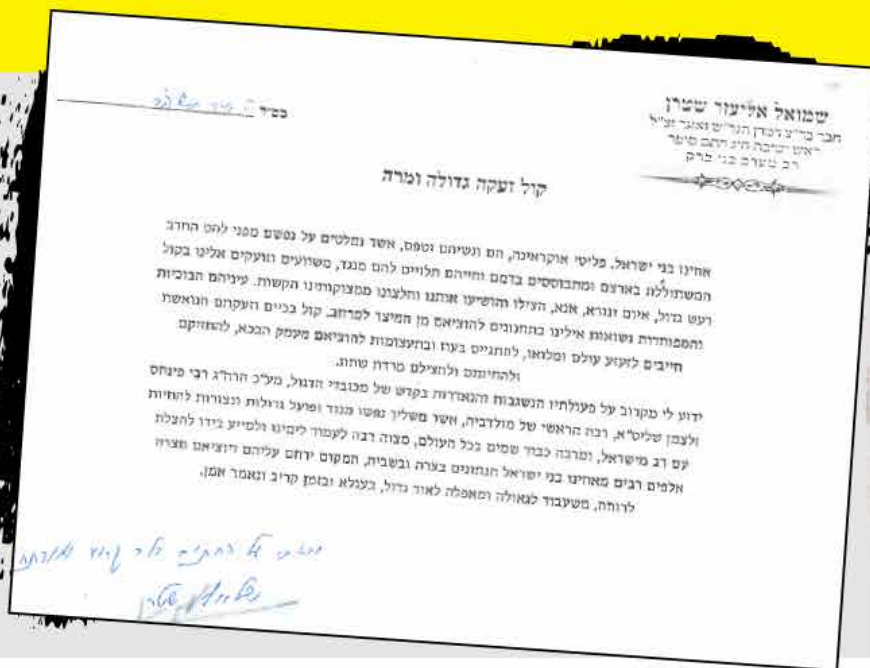 שמואל אליעזר שטרן
חבר בד״צ דמרן הגר״ש ואזנר זצ״ל
ראש ישיבת חוג חתם סופר
רב מערב בני ברק
בס״ד
קול זעקה גדולה ומרה
אחינו בני ישראל, פליטי אוקראינה, הם ונשיהם וטפם, אשר נמלטים על נפשם מפני להט החרב
המשתוללת בארצם ומתבוססים בדמם וחייהם תלויים להם מנגד, משוועים וזועקים אלינו בקול
רעש גדול, איום ונורא, אנא, הצילו והושיעו אותנו וחלצונו ממצוקותינו הקשות. עיניהם הבוכיות
והמפוחדות נשואות אילינו בתחנונים להוציאם מן המיצר למרחב, קול בכיים וזעקתם הנואשת
חייבים לזעזע עולם ומלואו, להתגייס בעוז ובתעצומות להוציאם מעמק הבכא, להחזיקם
ולהחיותם ולהצילם מרדת שחת.
ידוע לי מקרוב על פעולתיו הנשגבות והנאדרות בקדש של מכובדי הדגול, מע״כ הרה״ג רבי פינחס
זלצמן שליט״א, רבה הראשי של מולדביה, אשר משליך נפשו מנגד ופועל גדולות ונצורות להחיות
עם רב מישראל, ומרבה כבוד שמים בכל העולם, מצוה רבה לעמוד לימינו ולסייע בידו להצלת
אלפים רבים מאחינו בני ישראל הנתונים בצרה ובשביה, המקום ירחם עליהם ויוציאם מצרה
לרוחה, משעבוד לגאולה ומאפלה לאור גדול, בעגלא ובזמן קריב ונאמר אמן.